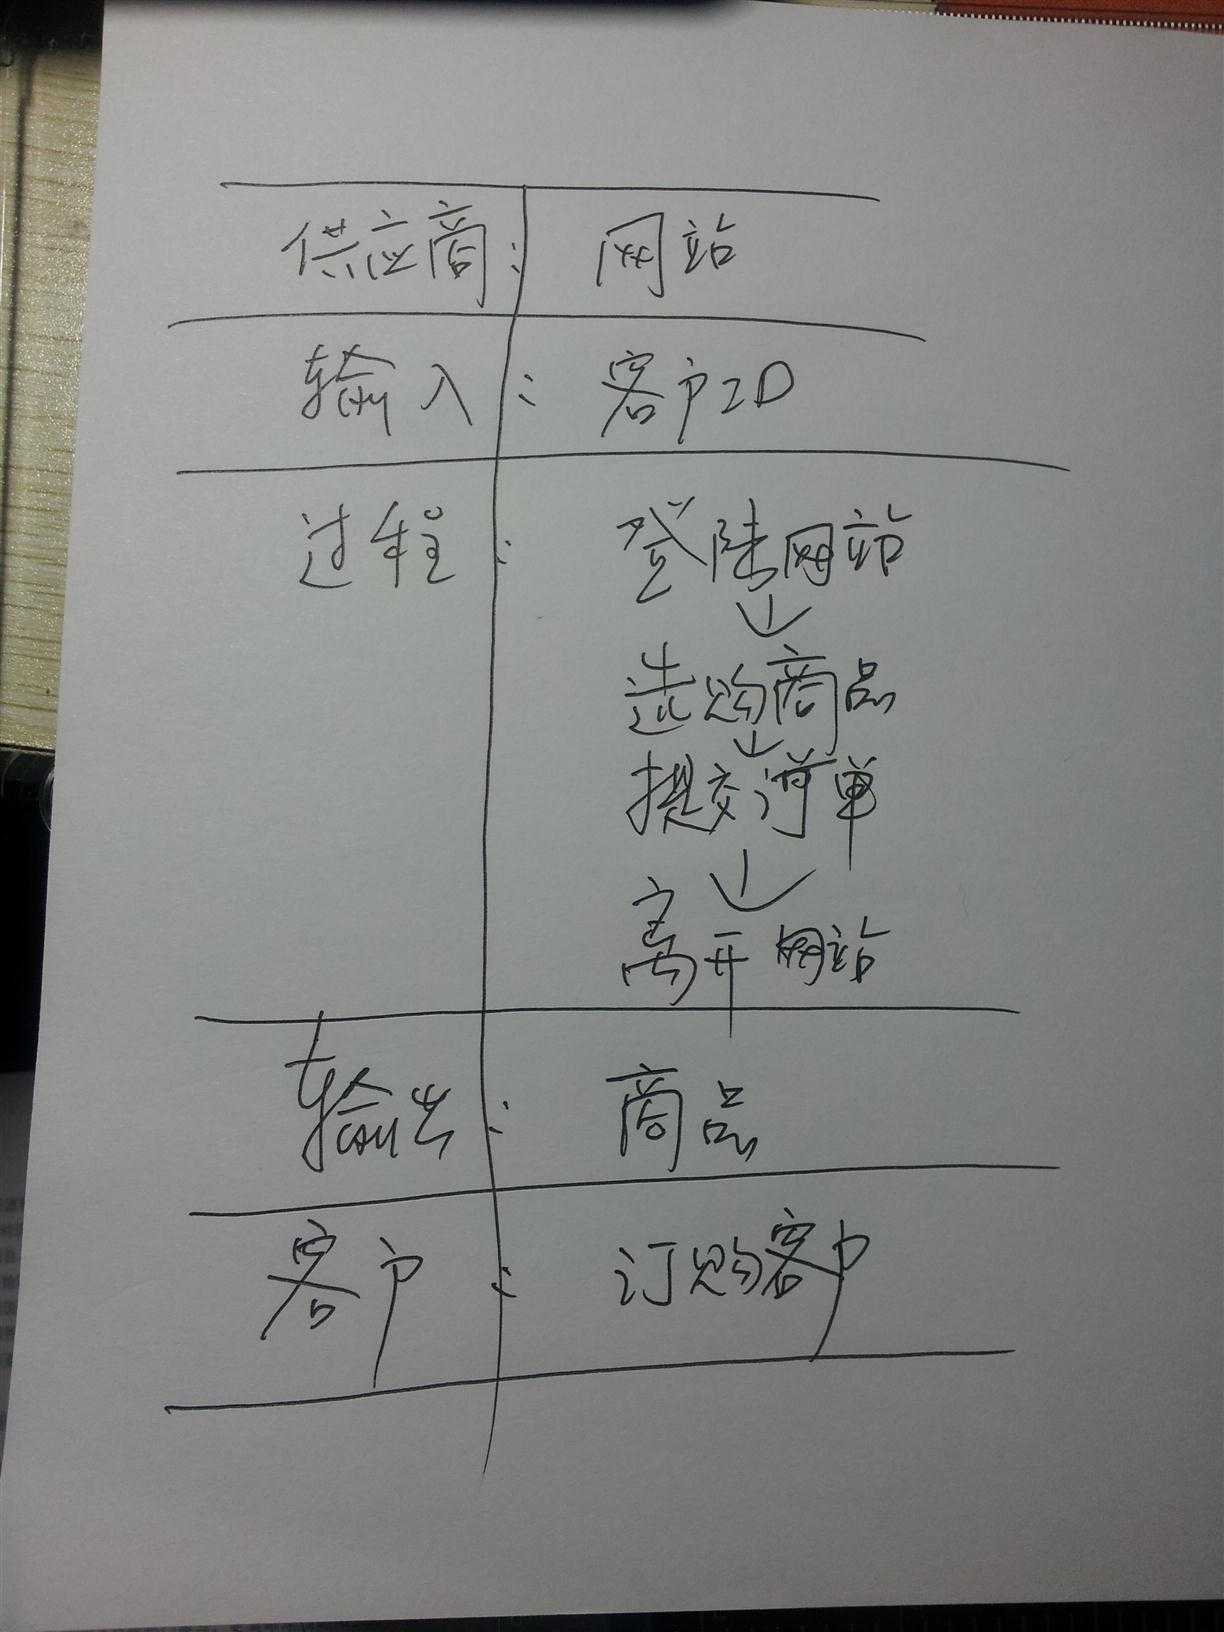 供应商: 网站
输入: 客户ID
过程: 登陆网站
↓
选购商品
↓
提交订单
↓
离开网站
输出: 商品
客户: 订购客户